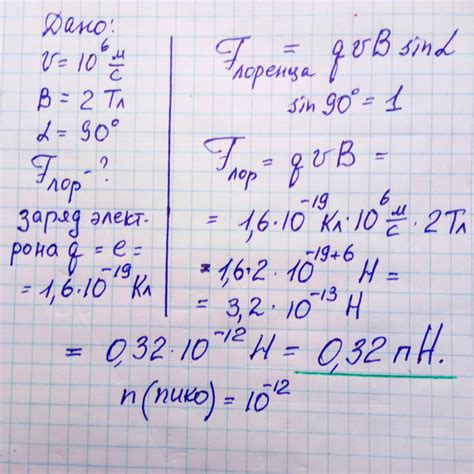 Дано:
v = 10⁶ м/с
B = 2 Тл
α = 90°
Fлор - ?
заряд элект-
рона q = e =
= 1,6·10⁻¹⁹ Кл
Fлоренца = q v B sin α
sin 90° = 1
Fлор = q v B =
= 1,6·10⁻¹⁹ Кл·10⁶ м/с · 2 Тл
= 1,6·2·10⁻¹⁹⁺⁶ Н =
= 3,2·10⁻¹³ Н
= 0,32·10⁻¹² Н = 0,32 пН.
п(пико) = 10⁻¹²